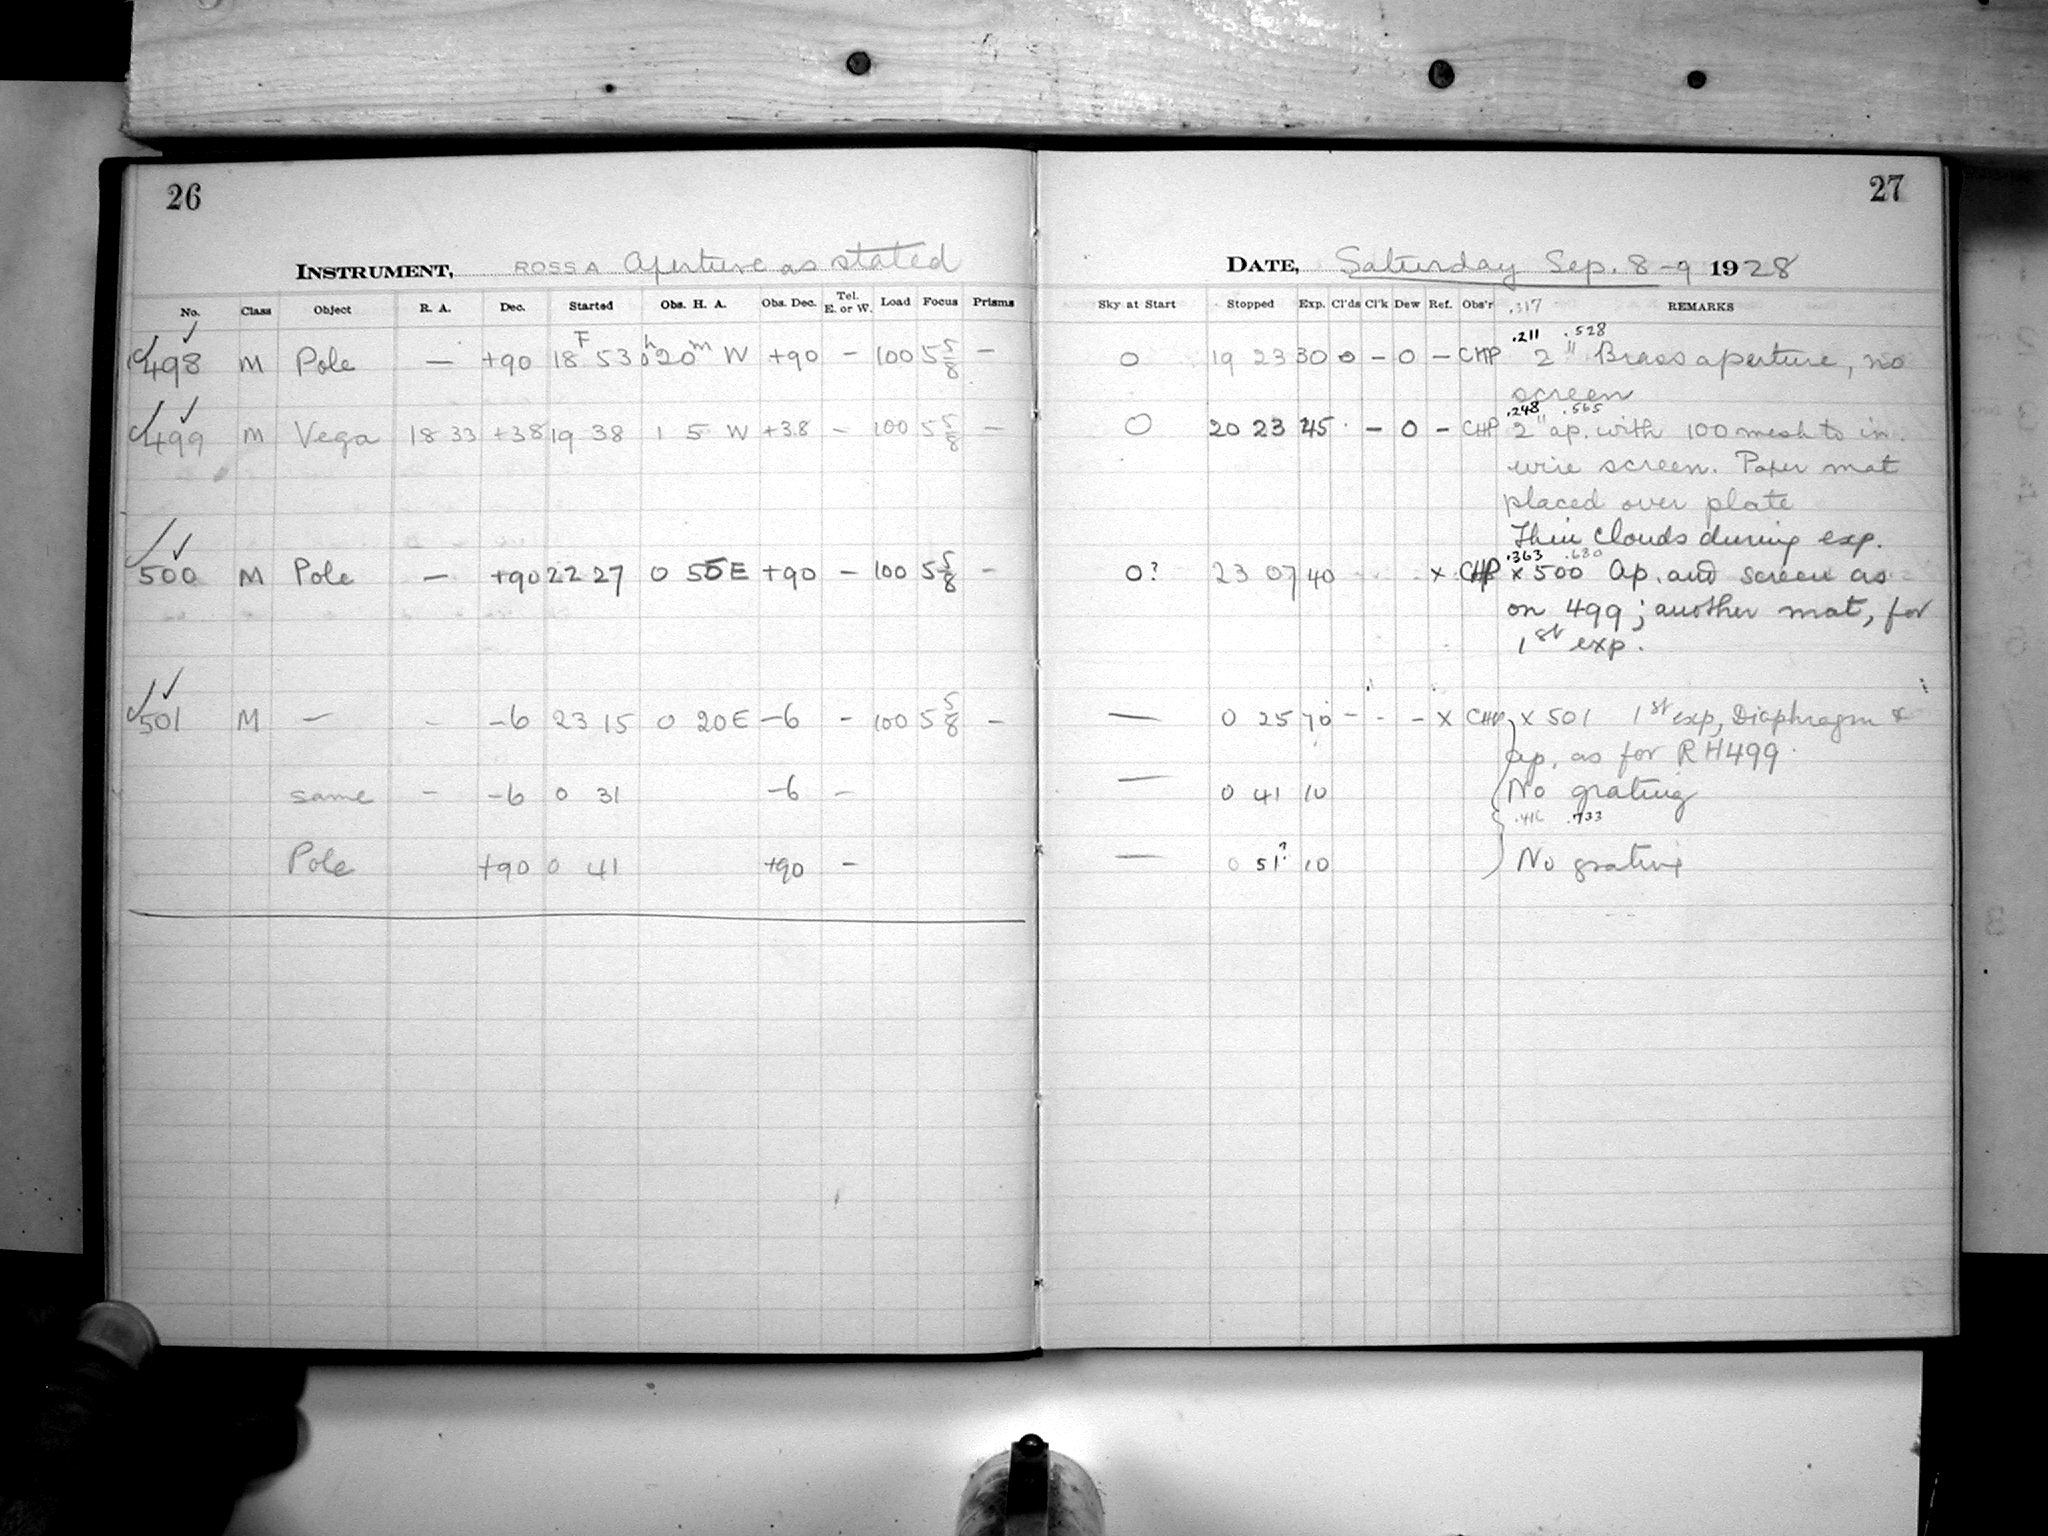 26
INSTRUMENT, ROSS A Aperture as stated
No. Class Object R. A. Dec. Started Obs. H. A. Obs. Dec. Tel. E. or W. Load Focus Prisms
498 M Pole — +90 18 53 0h 20m W +90 — 100 5 5/8 —
499 M Vega 18 33 +38 19 38 1 5 W +38 — 100 5 5/8 —
500 M Pole — +90 22 27 0 55 E +90 — 100 5 5/8 —
501 M — - -6 23 15 0 20 E -6 - 100 5 5/8 —
same - -6 0 31 -6 —
Pole +90 0 41 +90 —
27
DATE, Saturday Sep. 8-9 1928
Sky at Start Stopped Exp. Cl'ds Cl'k Dew Ref. Obs'r .317 REMARKS
.211 .528
0 19 23 30 0 - 0 - CHP 2" Brass aperture, no
screen
.248 .565
0 20 23 45 · - 0 - CHP 2" ap. with 100 mesh to in.
wire screen. Paper mat
placed over plate
Thin clouds during exp.
.363 .680
0? 23 07 40 x CHP x 500 Ap. and screen as
on 499; another mat, for
1st exp.
— 0 25 70 - - - x CHP x 501 1st exp, Diaphragm &
ap. as for RH499.
— 0 41 10 No grating
.416 .733
— 0 51? 10 No grating